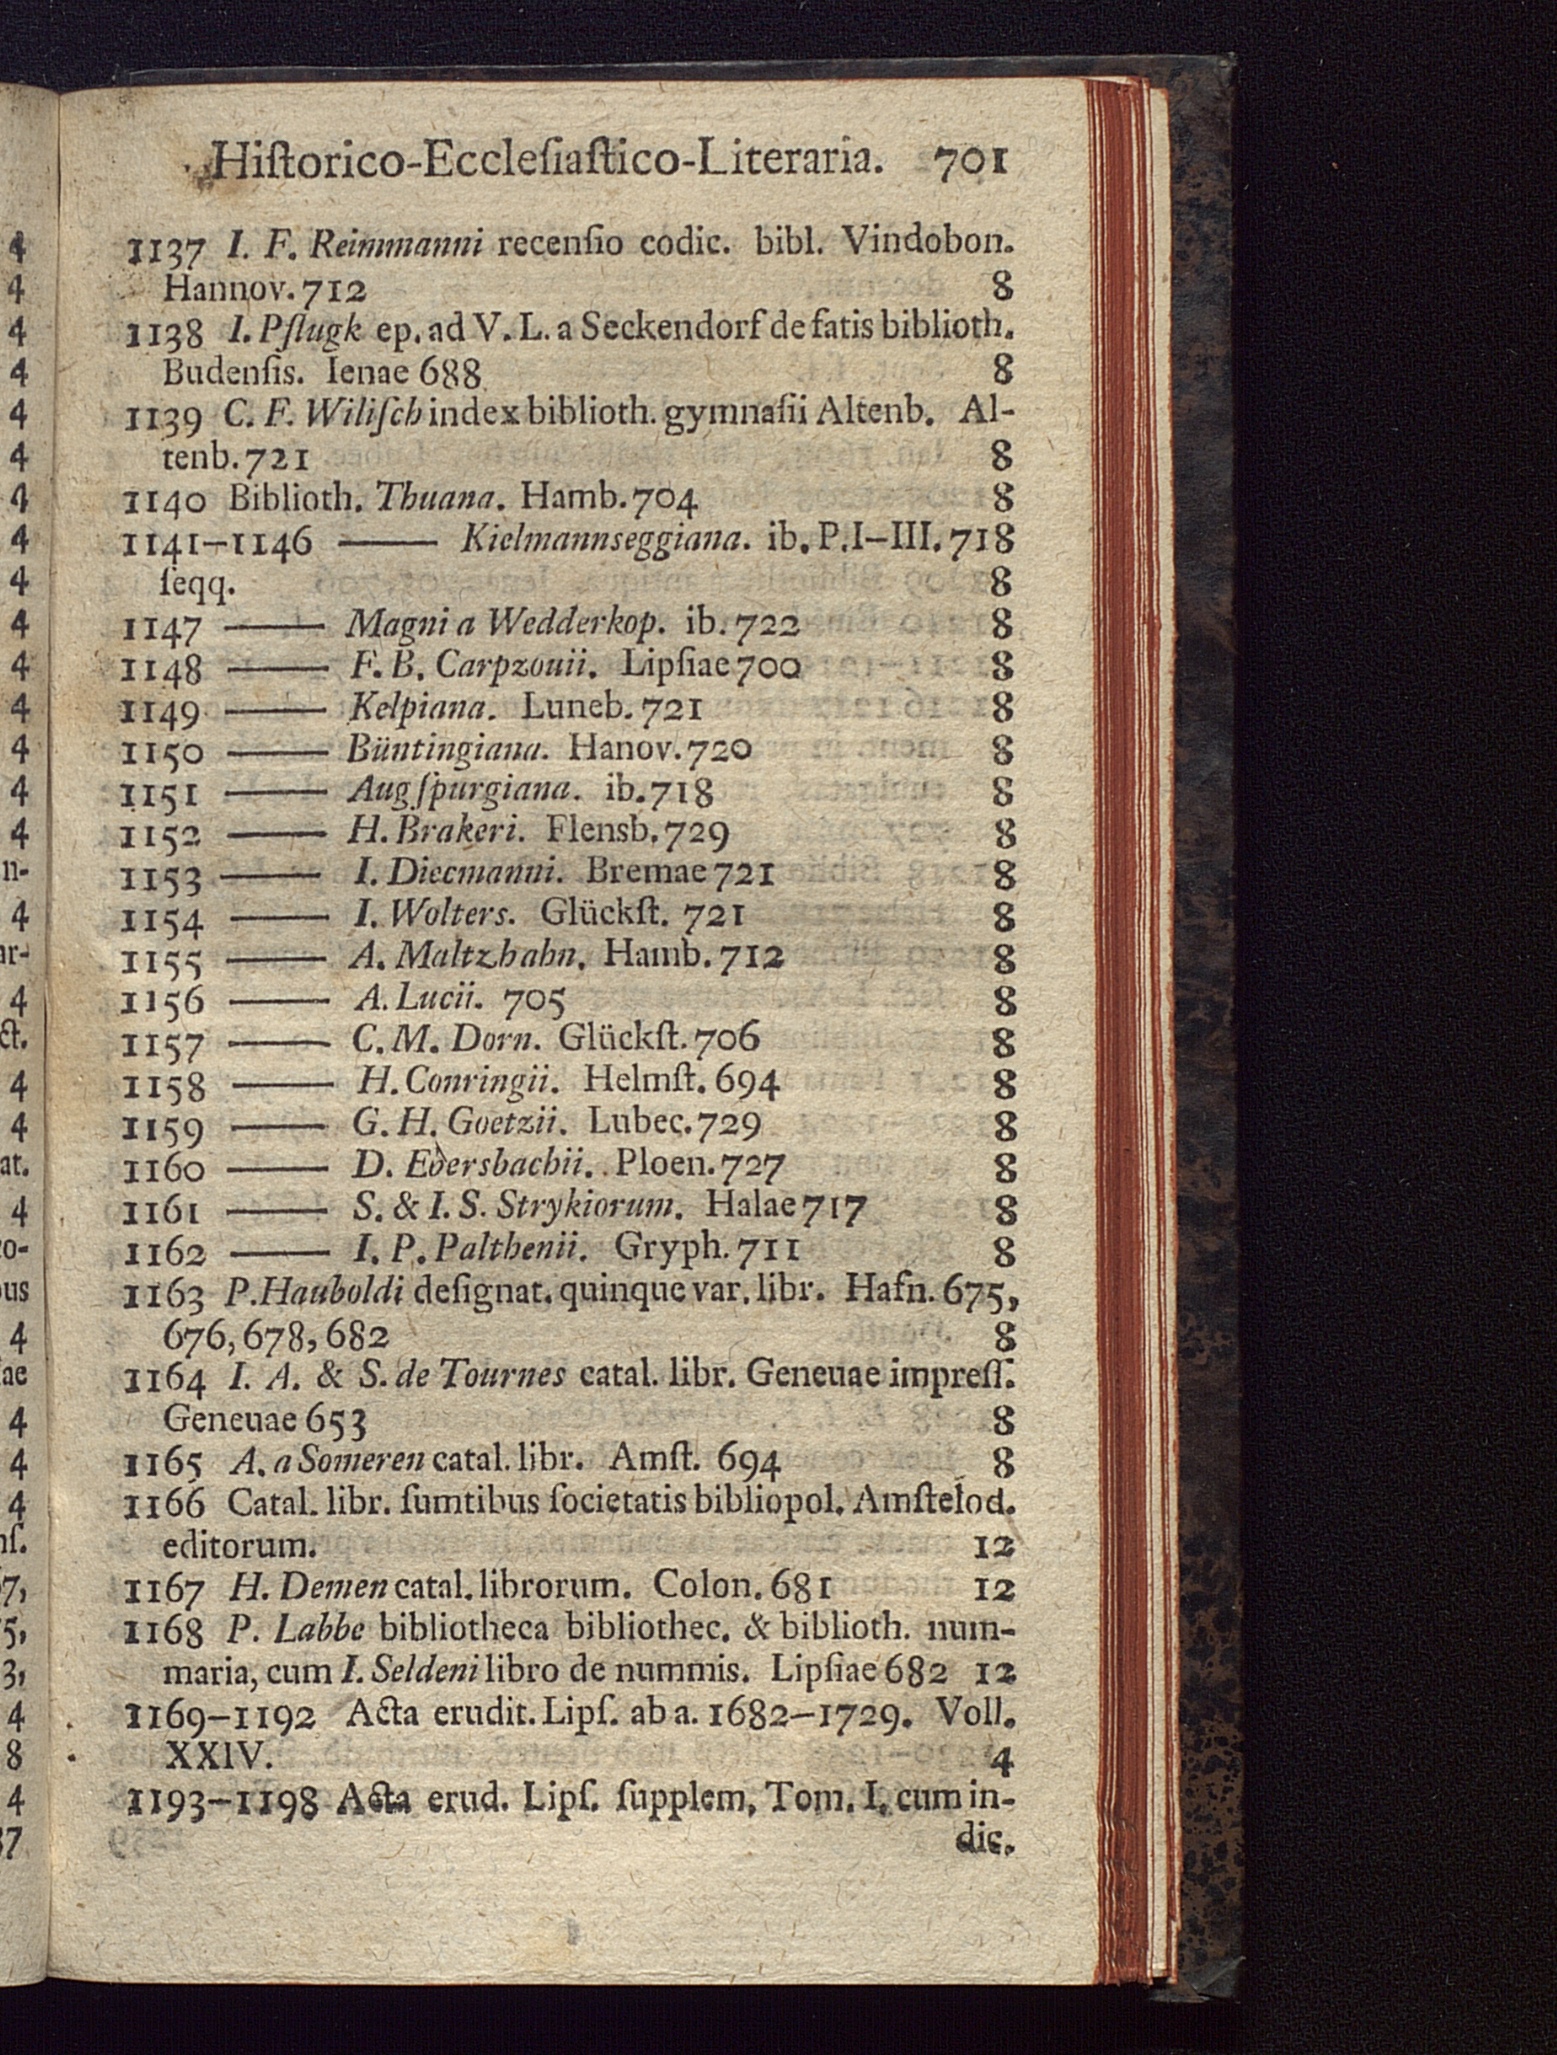 Hiſtorico-Eccleſiaſtico-Literaria. 701
1137 I. F. Reimmanni recenſio codic. bibl. Vindobon.
Hannov. 712 8
1138 I. Pflugk ep. ad V. L. a Seckendorf de fatis biblioth.
Budenſis. Ienae 688 8
1139 C. F. Wiliſch index biblioth. gymnaſii Altenb. Al-
tenb. 721 8
1140 Biblioth. Thuana. Hamb. 704 8
1141–1146 —— Kielmannseggiana. ib. P. I–III. 718
ſeqq. 8
1147 —— Magni a Wedderkop. ib. 722 8
1148 —— F. B. Carpzouii. Lipſiae 700 8
1149 —— Kelpiana. Luneb. 721 8
1150 —— Büntingiana. Hanov. 720 8
1151 —— Augſpurgiana. ib. 718 8
1152 —— H. Brakeri. Flensb. 729 8
1153 —— I. Diecmanni. Bremae 721 8
1154 —— I. Wolters. Glückſt. 721 8
1155 —— A. Maltzhahn. Hamb. 712 8
1156 —— A. Lucii. 705 8
1157 —— C. M. Dorn. Glückſt. 706 8
1158 —— H. Conringii. Helmſt. 694 8
1159 —— G. H. Goetzii. Lubec. 729 8
1160 —— D. Ebersbachii. Ploen. 727 8
1161 —— S. & I. S. Strykiorum. Halae 717 8
1162 —— I. P. Palthenii. Gryph. 711 8
1163 P. Hauboldi deſignat. quinque var. libr. Hafn. 675,
676, 678, 682 8
1164 I. A. & S. de Tournes catal. libr. Geneuae impreſſ.
Geneuae 653 8
1165 A. a Someren catal. libr. Amſt. 694 8
1166 Catal. libr. ſumtibus ſocietatis bibliopol. Amſtelod.
editorum. 12
1167 H. Demen catal. librorum. Colon. 681 12
1168 P. Labbe bibliotheca bibliothec. & biblioth. num-
maria, cum I. Seldeni libro de nummis. Lipſiae 682 12
1169–1192 Acta erudit. Lipſ. ab a. 1682–1729. Voll.
XXIV. 4
1193–1198 Acta erud. Lipſ. ſupplem. Tom. I. cum in-
dic.